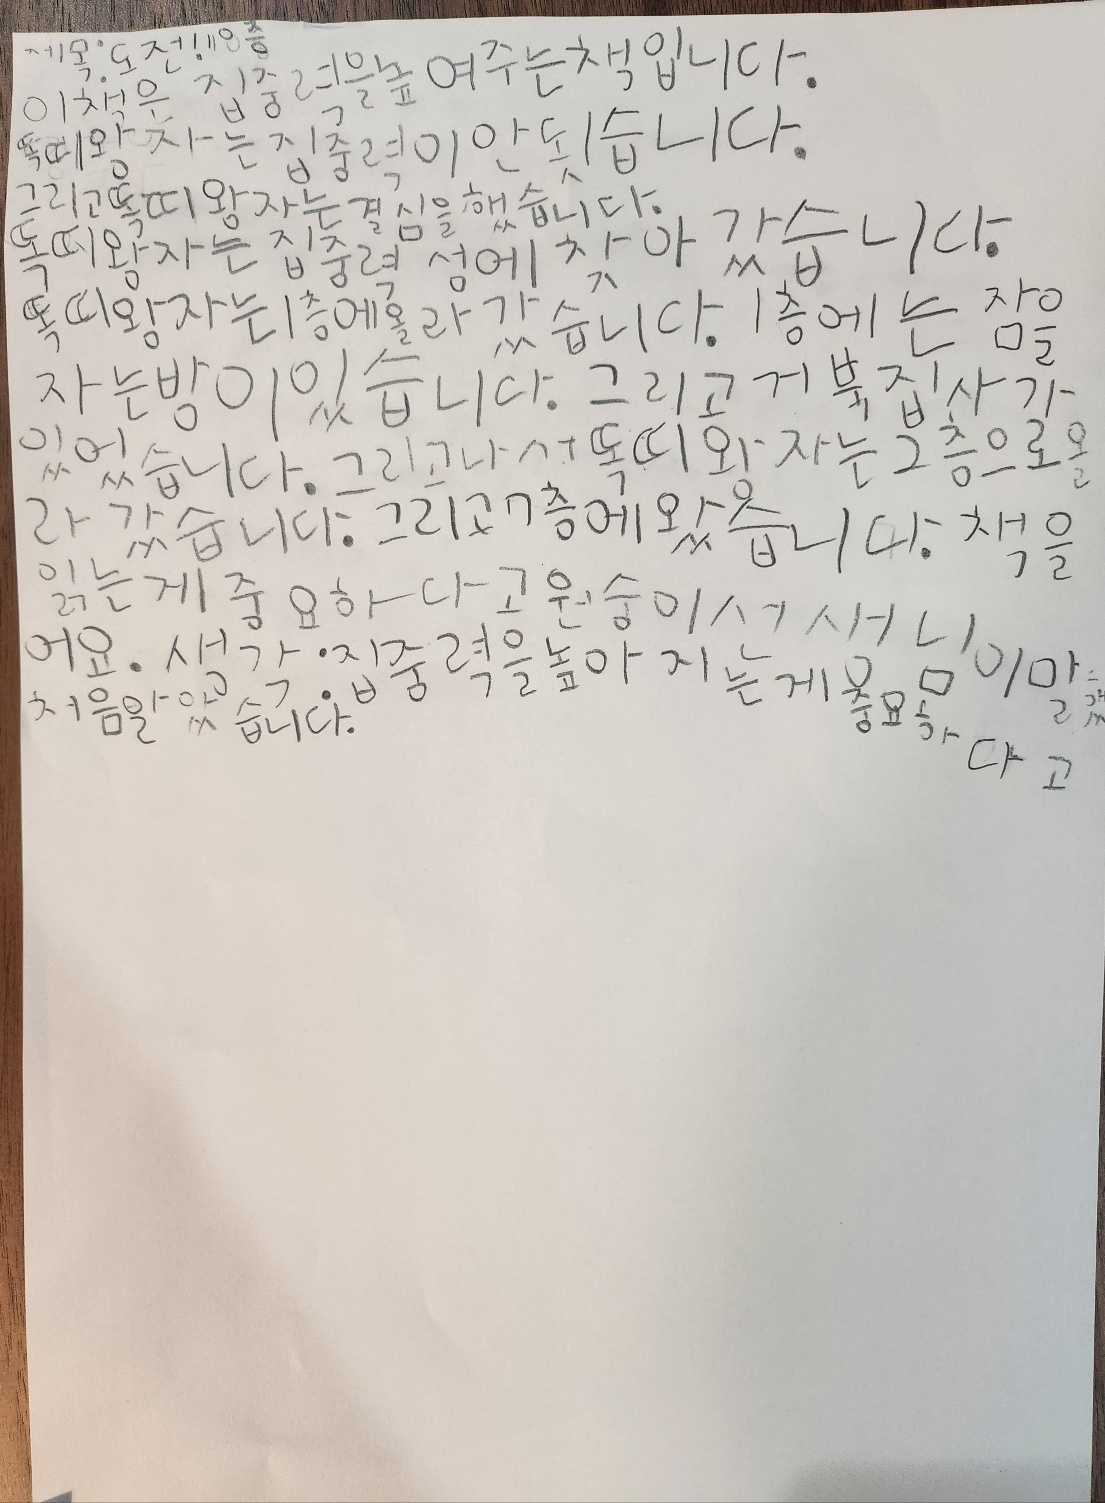 제목:도전! 8층
이책은 집중력을높여주는책입니다.
똑띠왕자는집중력이안됫습니다.
그리고똑띠왕자는결심을했습니다.
똑띠왕자는 집중력 성에 찻아 갔습니다.
똑띠왕자는1층에올라갔습니다. 1층에는 잠을
자는방이있습니다. 그리고 거북집사가
있었습니다. 그리고나서똑띠왕자는2층으로올
라갔습니다. 그리고7층에왔습니다. 책을
읽는게중요하다고원숭이서생님이말했
어요. 생각:집중력을높아지는게중요하다고
처음알았습니다.